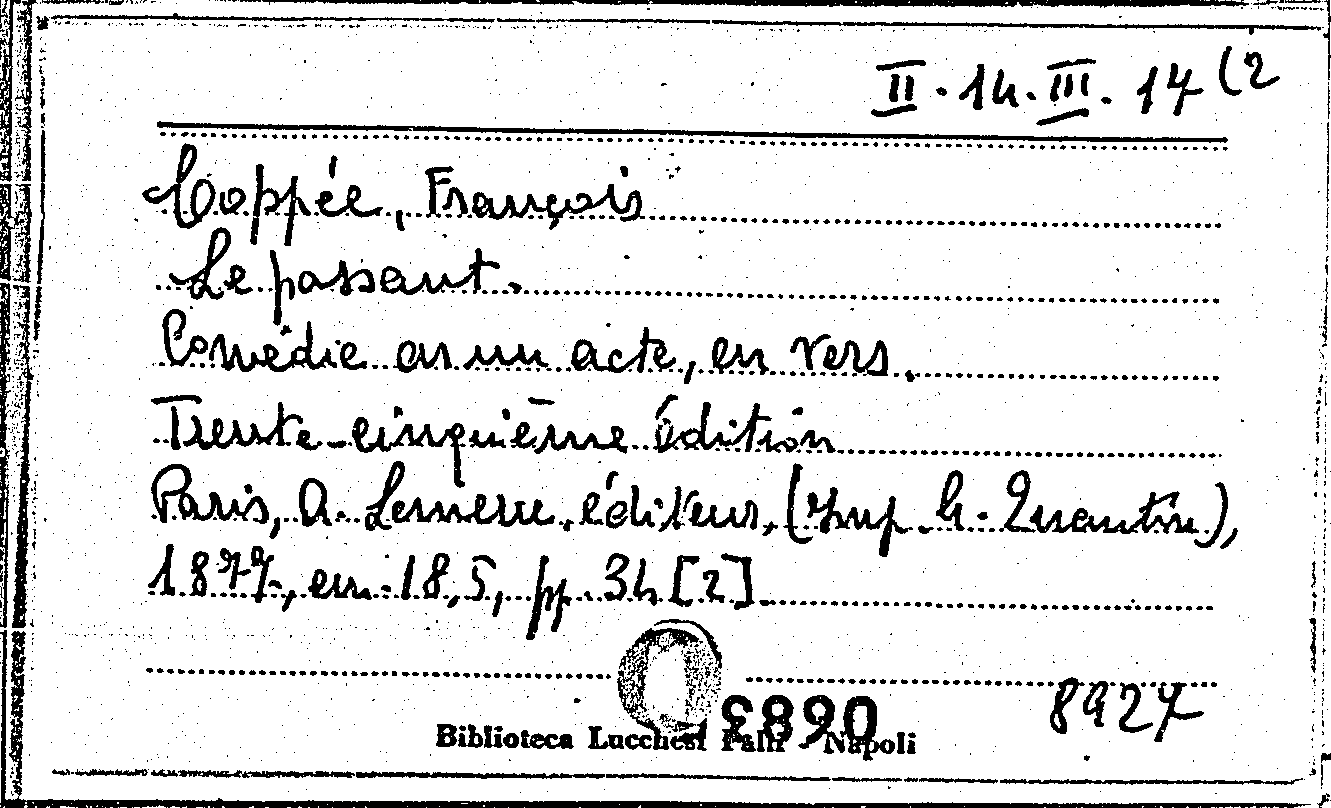 II. 14. III. 17 (2
Coppée, François
Le passant.
Comédie en un acte, en vers.
Trente-cinquième édition
Paris, A. Lemerre, éditeur, (Imp. A. Quantin),
1877, en-18,5, pp. 34 [2].
06883
8927
Biblioteca Lucchesi Palli - Napoli